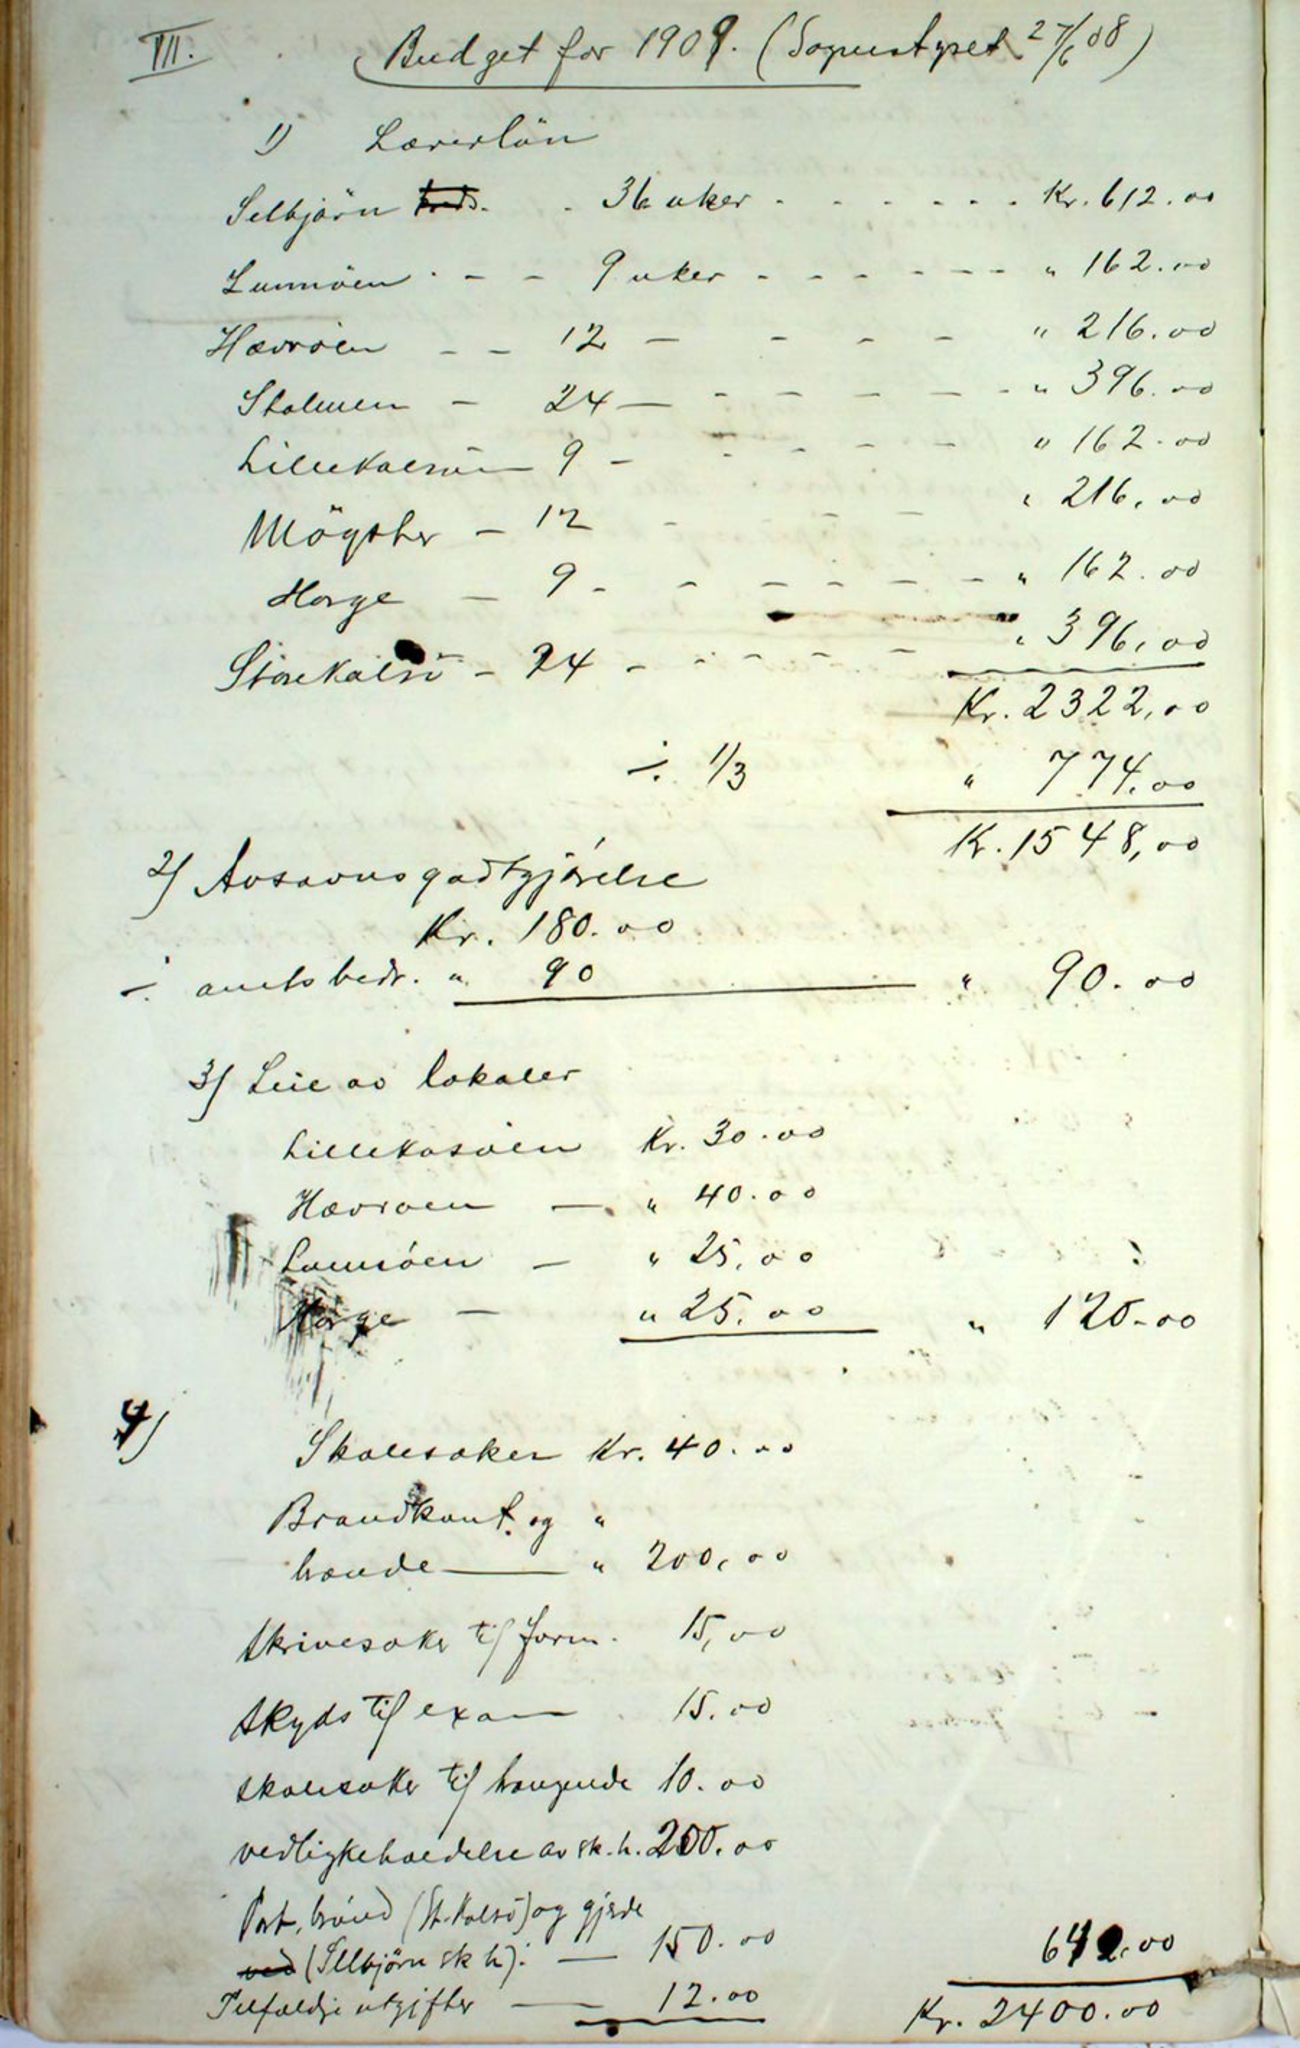 VII. Budget for 1909. (Sognestyret 27/6 08)
1) Lærerlön
Selbjörn 36 uker - - - - - - Kr. 612.00
Lunnöen - - - 9 uker - - - - - - " 162.00
Hævröen - - 12 - - - - " 216.00
Stolmen - 24 - - - - - - " 396.00
Lillekalsöen 9 - - - - " 162.00
Mögster - 12 - - - " 216,00
Horge - 9 - - - - - - " 162.00
Storekalsö - 24 - - - - - " 396,00
Kr. 2322,00
÷ 1/3 " 774.00
Kr. 1548,00
2) Avsavnsgodtgjörelse
Kr. 180.00
÷ amtsbedr. " 90 " 90.00
3) Leie av lokaler
Lillekasöen Kr. 30.00
Hævröen — " 40.00
Lunnöen — " 25,00
Horge — " 25.00 " 120.00
4)
Skolesaker Kr. 40.00
Brandkont. og "
brænde — " 200,00
Skrivesaker til form. 15,00
Skyds til exam 15.00
skolesaker til trængende 10.00
vedlikeholdelse av sk.h. 200.00
Port, brönd (St. Kalsö) og gjerde
ved (Selbjörn sk h): — 150.00 642.00
Tilfældige utgifter — 12.00
Kr. 2400.00